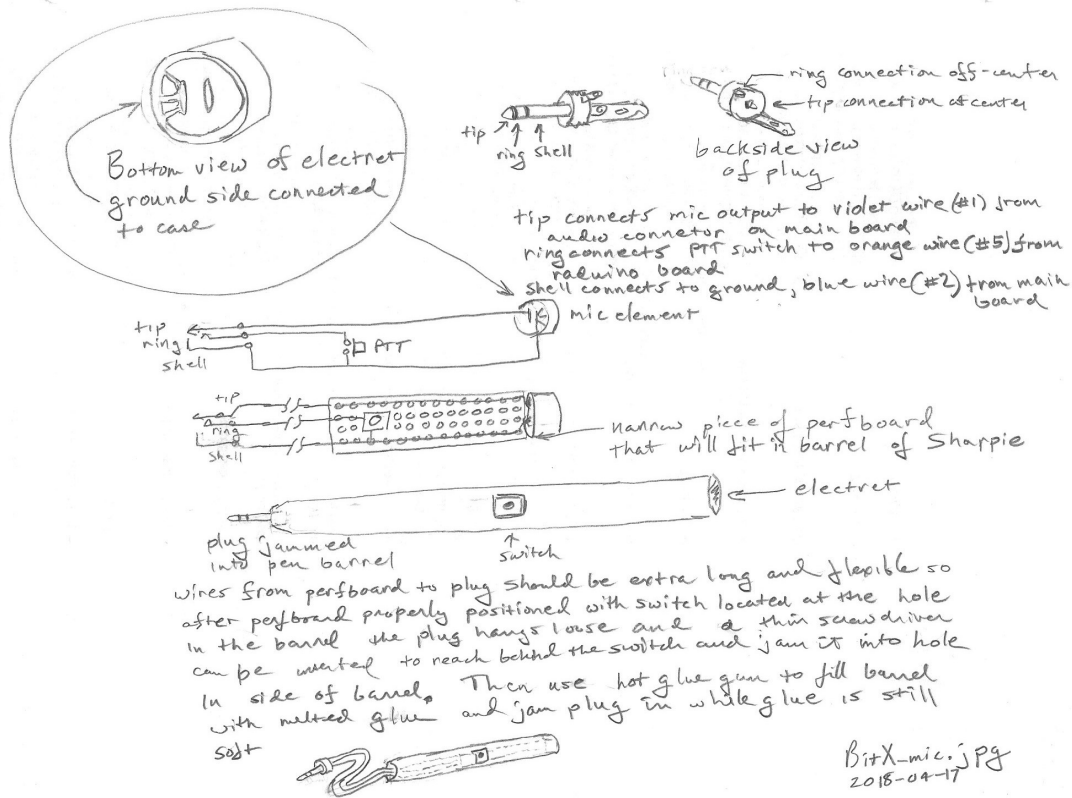 Bottom view of electret
ground side connected
to case
tip
ring shell
ring connection off-center
tip connection at center
backside view
of plug
tip connects mic output to violet wire (#1) from
audio connetor on main board
ring connects PTT switch to orange wire (#5) from
raduino board
shell connects to ground, blue wire (#2) from main
board
mic element
tip
ring
shell
PTT
tip
ring
shell
narrow piece of perfboard
that will fit in barrel of Sharpie
electret
plug jammed
into pen barrel
switch
wires from perfboard to plug should be extra long and flexible so
after perfboard properly positioned with switch located at the hole
in the barrel the plug hangs loose and a thin screwdriver
can be inserted to reach behind the switch and jam it into hole
in side of barrel. Then use hot glue gun to fill barrel
with melted glue and jam plug in while glue is still
soft
BitX_mic.jpg
2018-04-17